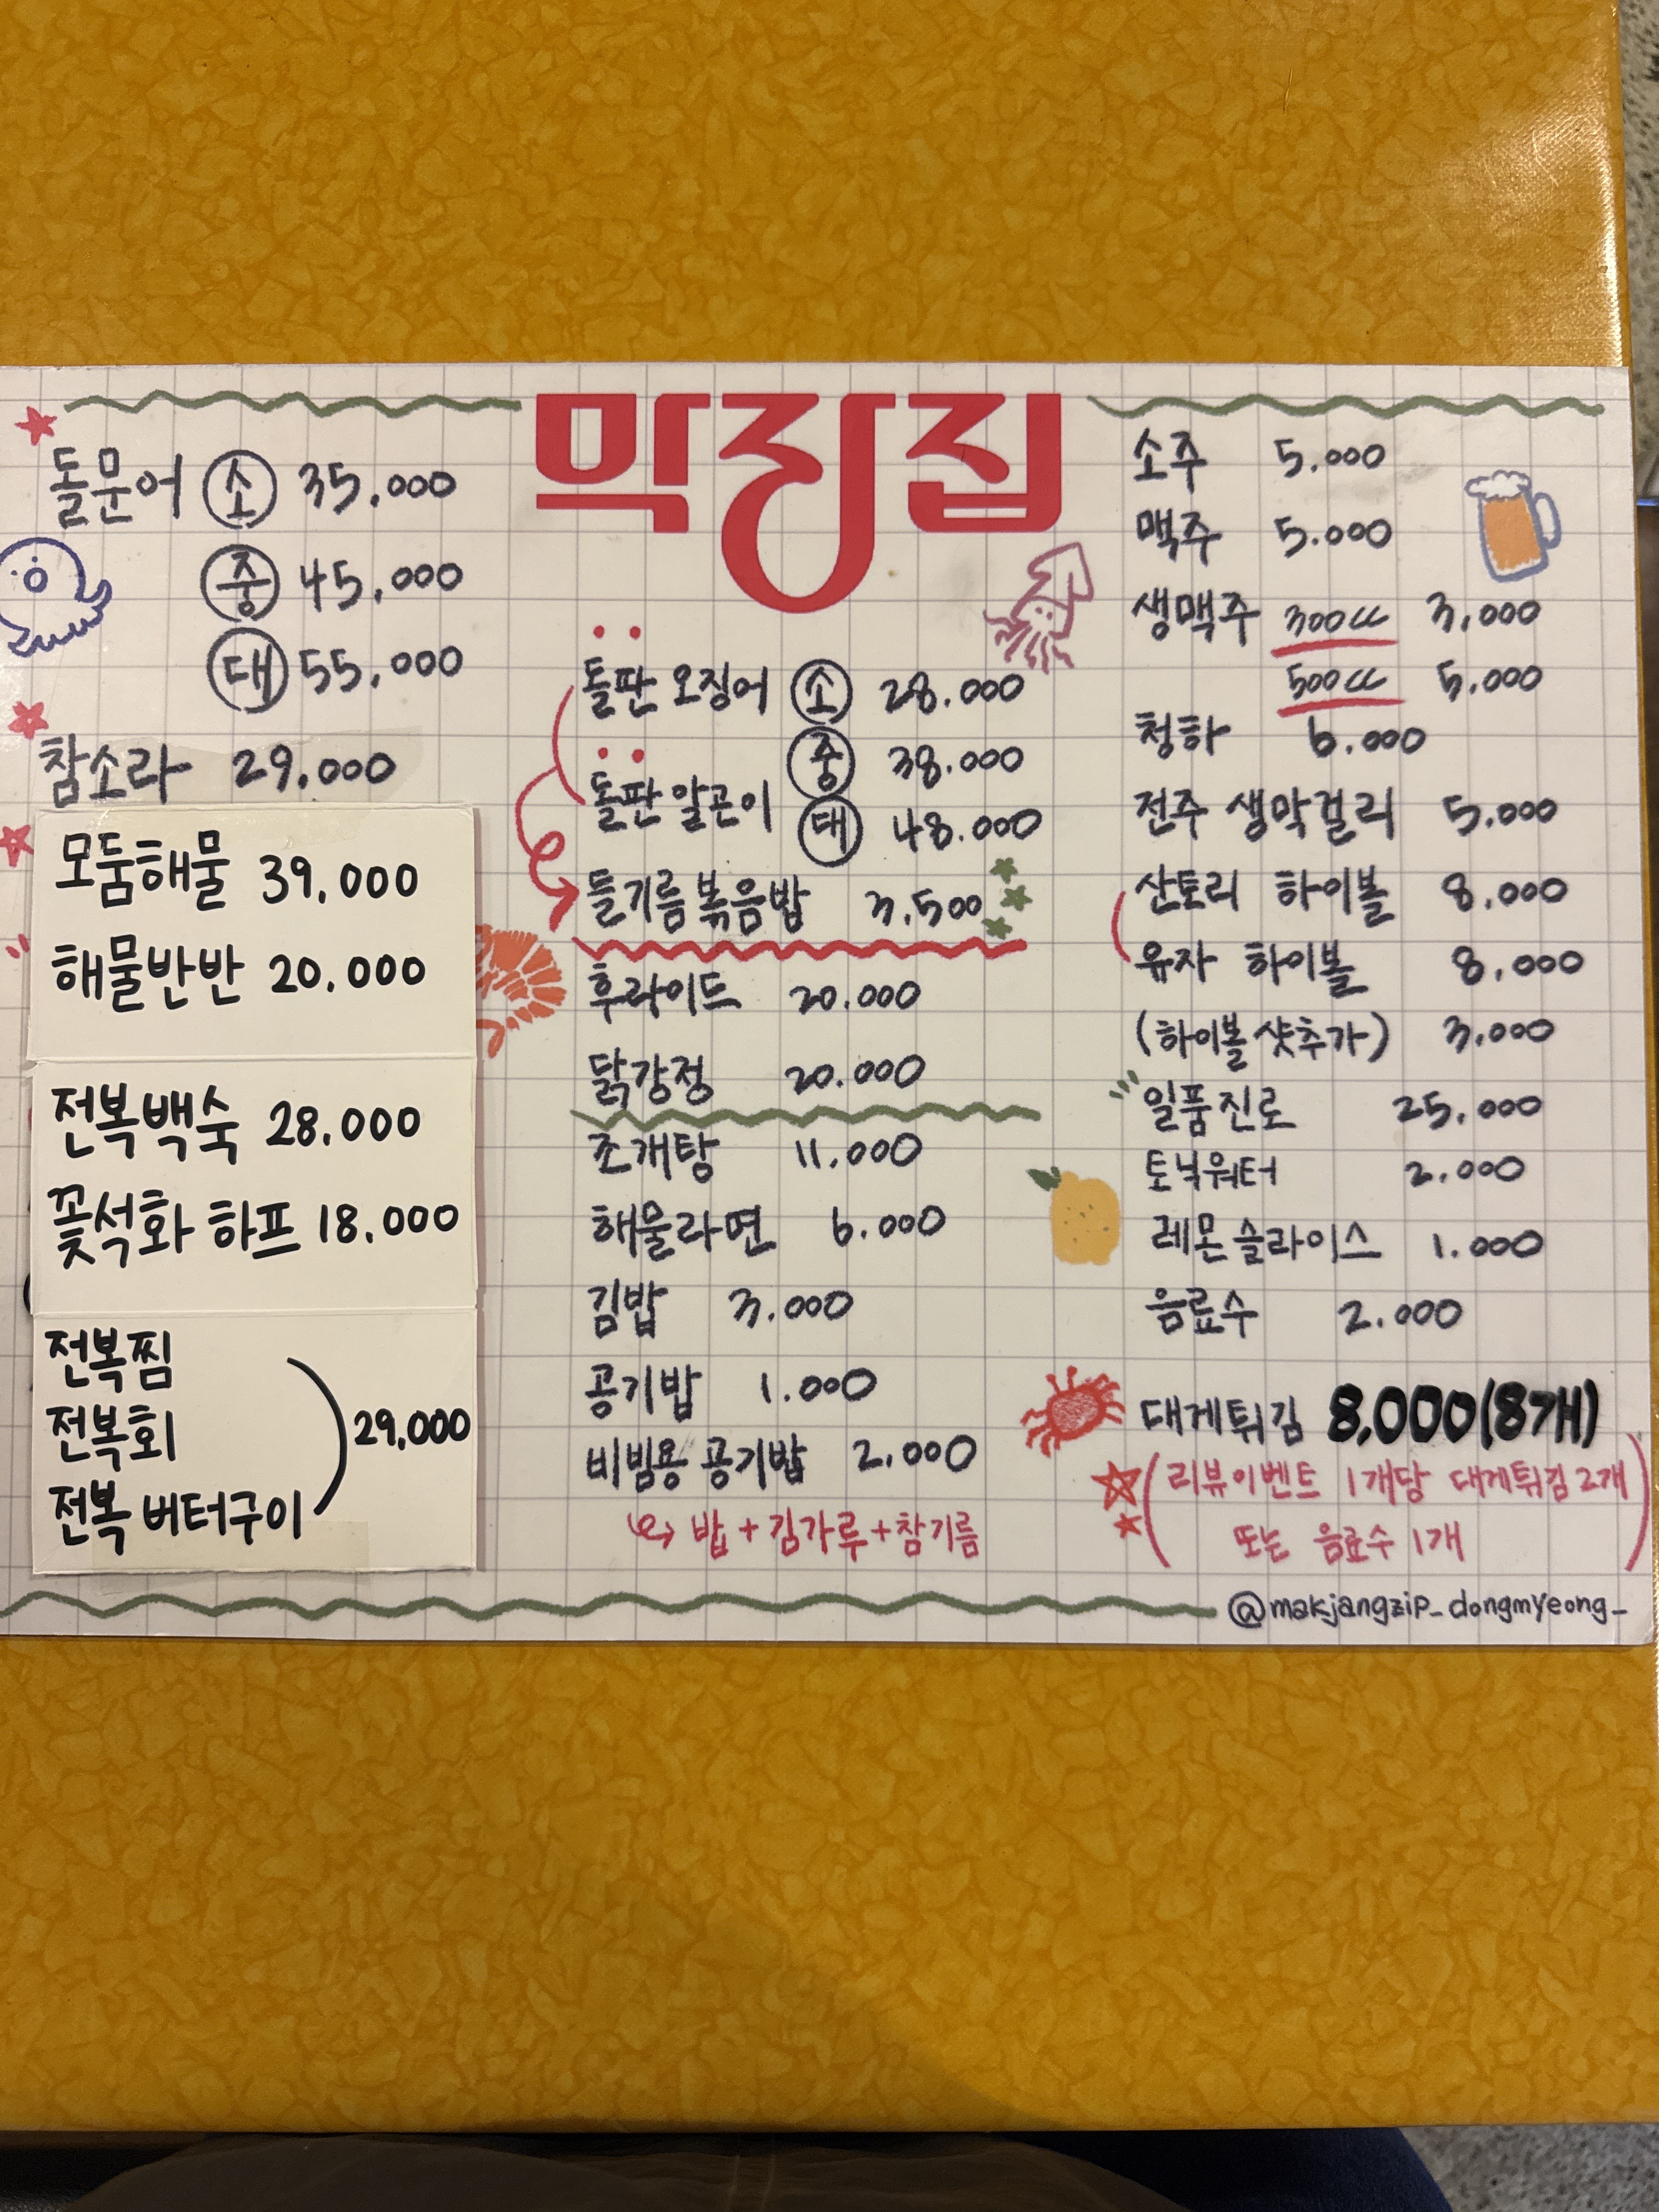 막장집
돌문어 소 35,000
중 45,000
대 55,000
참소라 29,000
모둠해물 39,000
해물반반 20,000
전복백숙 28,000
꽃석화 하프 18,000
전복찜
전복회
전복 버터구이
29,000
돌판 오징어 소 28,000
중 38,000
돌판 알곤이
대 48,000
들기름볶음밥 3,500
후라이드 20,000
닭강정 20,000
조개탕 11,000
해물라면 6,000
김밥 3,000
공기밥 1,000
비빔용 공기밥 2,000
밥 + 김가루 + 참기름
소주 5,000
맥주 5,000
생맥주 300cc 3,000
500cc 5,000
청하 6,000
전주 생막걸리 5,000
산토리 하이볼 8,000
유자 하이볼 8,000
(하이볼 샷추가) 3,000
일품진로 25,000
토닉워터 2,000
레몬슬라이스 1,000
음료수 2,000
대게튀김 8,000(8개)
(리뷰이벤트 1개당 대게튀김 2개
또는 음료수 1개)
@makjangzip_dongmyeong_